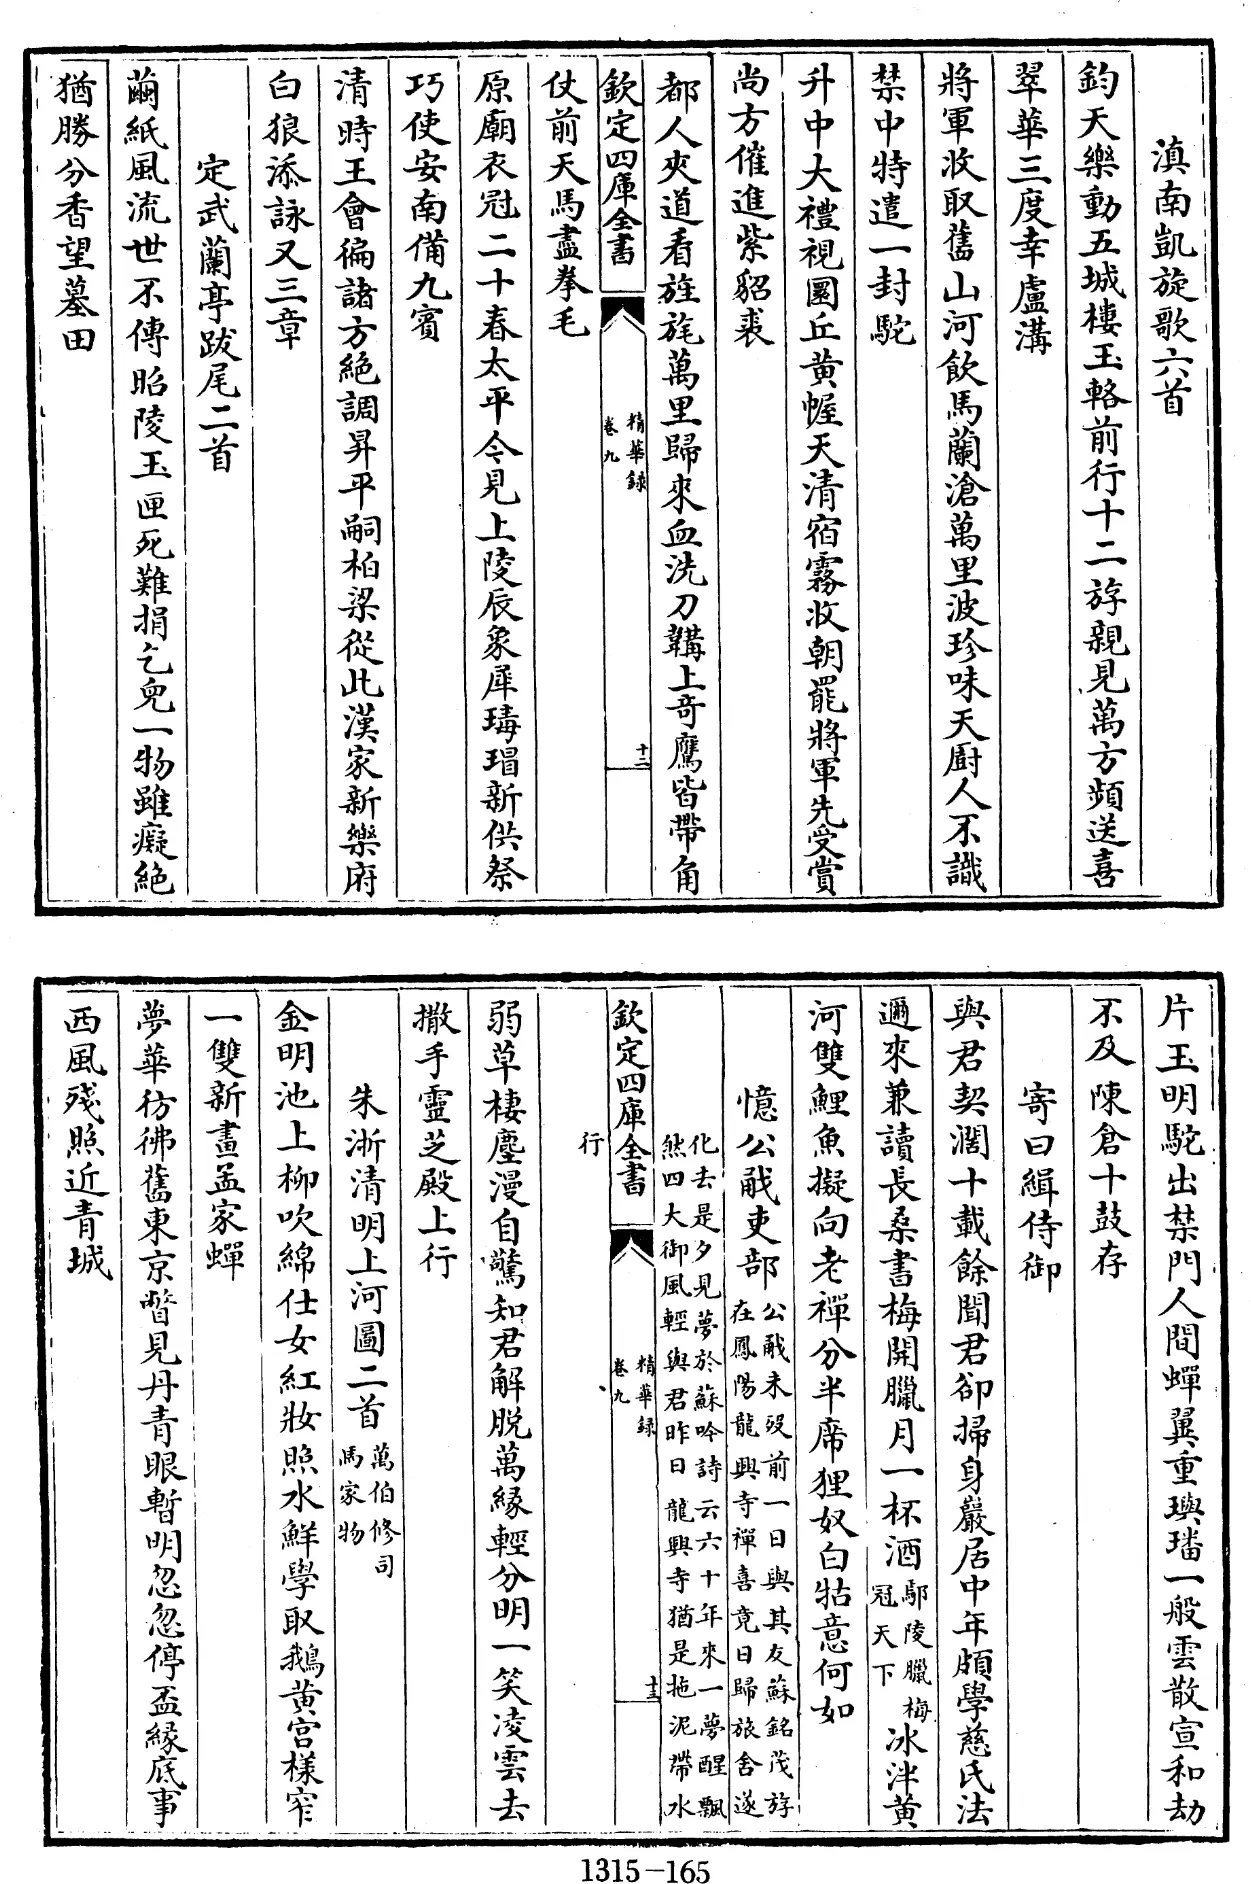 滇南凱旋歌六首
鈞天樂動五城樓玉輅前行十二斿親見萬方頻送喜
翠華三度幸盧溝
將軍收取舊山河飲馬蘭滄萬里波珍味天廚人不識
禁中特遣一封駝
升中大禮視圜丘黄幄天清宿霧收朝罷將軍先受賞
尚方催進紫貂裘
都人夾道看旌旄萬里歸來血洗刀韝上奇鷹皆帶角
欽定四庫全書
精華録
卷九
十二
仗前天馬盡拳毛
原廟衣冠二十春太平今見上陵辰象犀瑇瑁新供祭
巧使安南備九賓
清時王會徧諸方絶調昇平嗣柏梁從此漢家新樂府
白狼添詠又三章
定武蘭亭跋尾二首
繭紙風流世不傳昭陵玉匣死難捐乞兒一物雖癡絶
猶勝分香望墓田
片玉明駝出禁門人間蟬翼重璵璠一般雲散宣和劫
不及陳倉十鼓存
寄曰緝侍御
與君契濶十載餘聞君卻掃身巖居中年頗學慈氏法
邇來兼讀長桑書梅開臘月一杯酒鄢陵臘梅冠天下冰泮黄
河雙鯉魚擬向老禪分半席狸奴白牯意何如
憶公㦷吏部公㦷未歿前一日與其友蘇銘茂斿在鳳陽龍興寺禪喜竟日歸旅舍遂
化去是夕見夢於蘇吟詩云六十年來一夢醒飄然四大御風輕與君昨日龍興寺猶是拖泥帶水
欽定四庫全書
精華録
卷九
十三
行
弱草棲塵漫自驚知君解脱萬縁輕分明一笑凌雲去
撒手靈芝殿上行
朱淅清明上河圖二首萬伯修司馬家物
金明池上柳吹綿仕女紅妝照水鮮學取鵝黄宫様窄
一雙新畫孟家蟬
夢華彷彿舊東京瞥見丹青眼暫明忽忽停盃縁底事
西風殘照近青城
1315-165